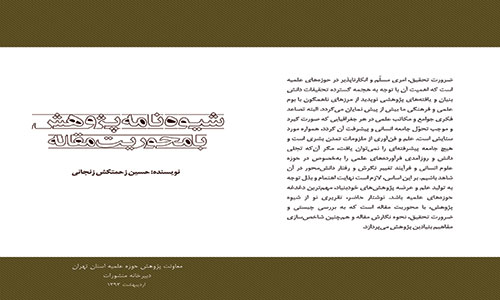 شیوه‌نامه پژوهش
با محوریت مقاله
نویسنده: حسین زحمتکش زنجانی
ضرورت تحقیق، امری مسلّم و انکارناپذیر در حوزه‌های علمیه
است که اهمیت آن با توجه به هجمه گسترده تحقیقات دانش
بنیان و یافته‌های پژوهشی نوپدید از مرزهای ناهمگون با بوم
علمی و فرهنگی ما بیش از پیش نمایان می‌گردد. البته تصاعد
فکری جوامع و مکاتب علمی در هر جغرافیایی که صورت گیرد
و موجب تحوّل جامعه انسانی و پیشرفت آن گردد، همواره مورد
ستایش است. علم و فن‌آوری از ملزومات تمدن بشری است و
هیچ جامعه پیشرفته‌ای را نمی‌توان یافت، مگر آن‌که تجلی
دانش و روزآمدی فرآورده‌های علمی را به‌خصوص در حوزه
علوم انسانی و فرآیند تغییر نگرش و رفتار دانش‌محور در آن
شاهد باشیم. بر این اساس، لازم است نهایت اهتمام و بذل توجه
به تولید علم و عرضه پژوهش‌های خودبنیاد، مهم‌ترین دغدغه
حوزه‌های علمیه باشد. نوشتار حاضر، تقریری نو از شیوه
پژوهش، با محوریت مقاله است که به بررسی چیستی و
ضرورت تحقیق، نحوه نگارش مقاله و همچنین شاخص‌سازی
مفاهیم بنیادین پژوهش می‌پردازد.
معاونت پژوهش حوزه علمیه استان تهران
دبیرخانه منشورات
اردیبهشت ۱۳۹۳